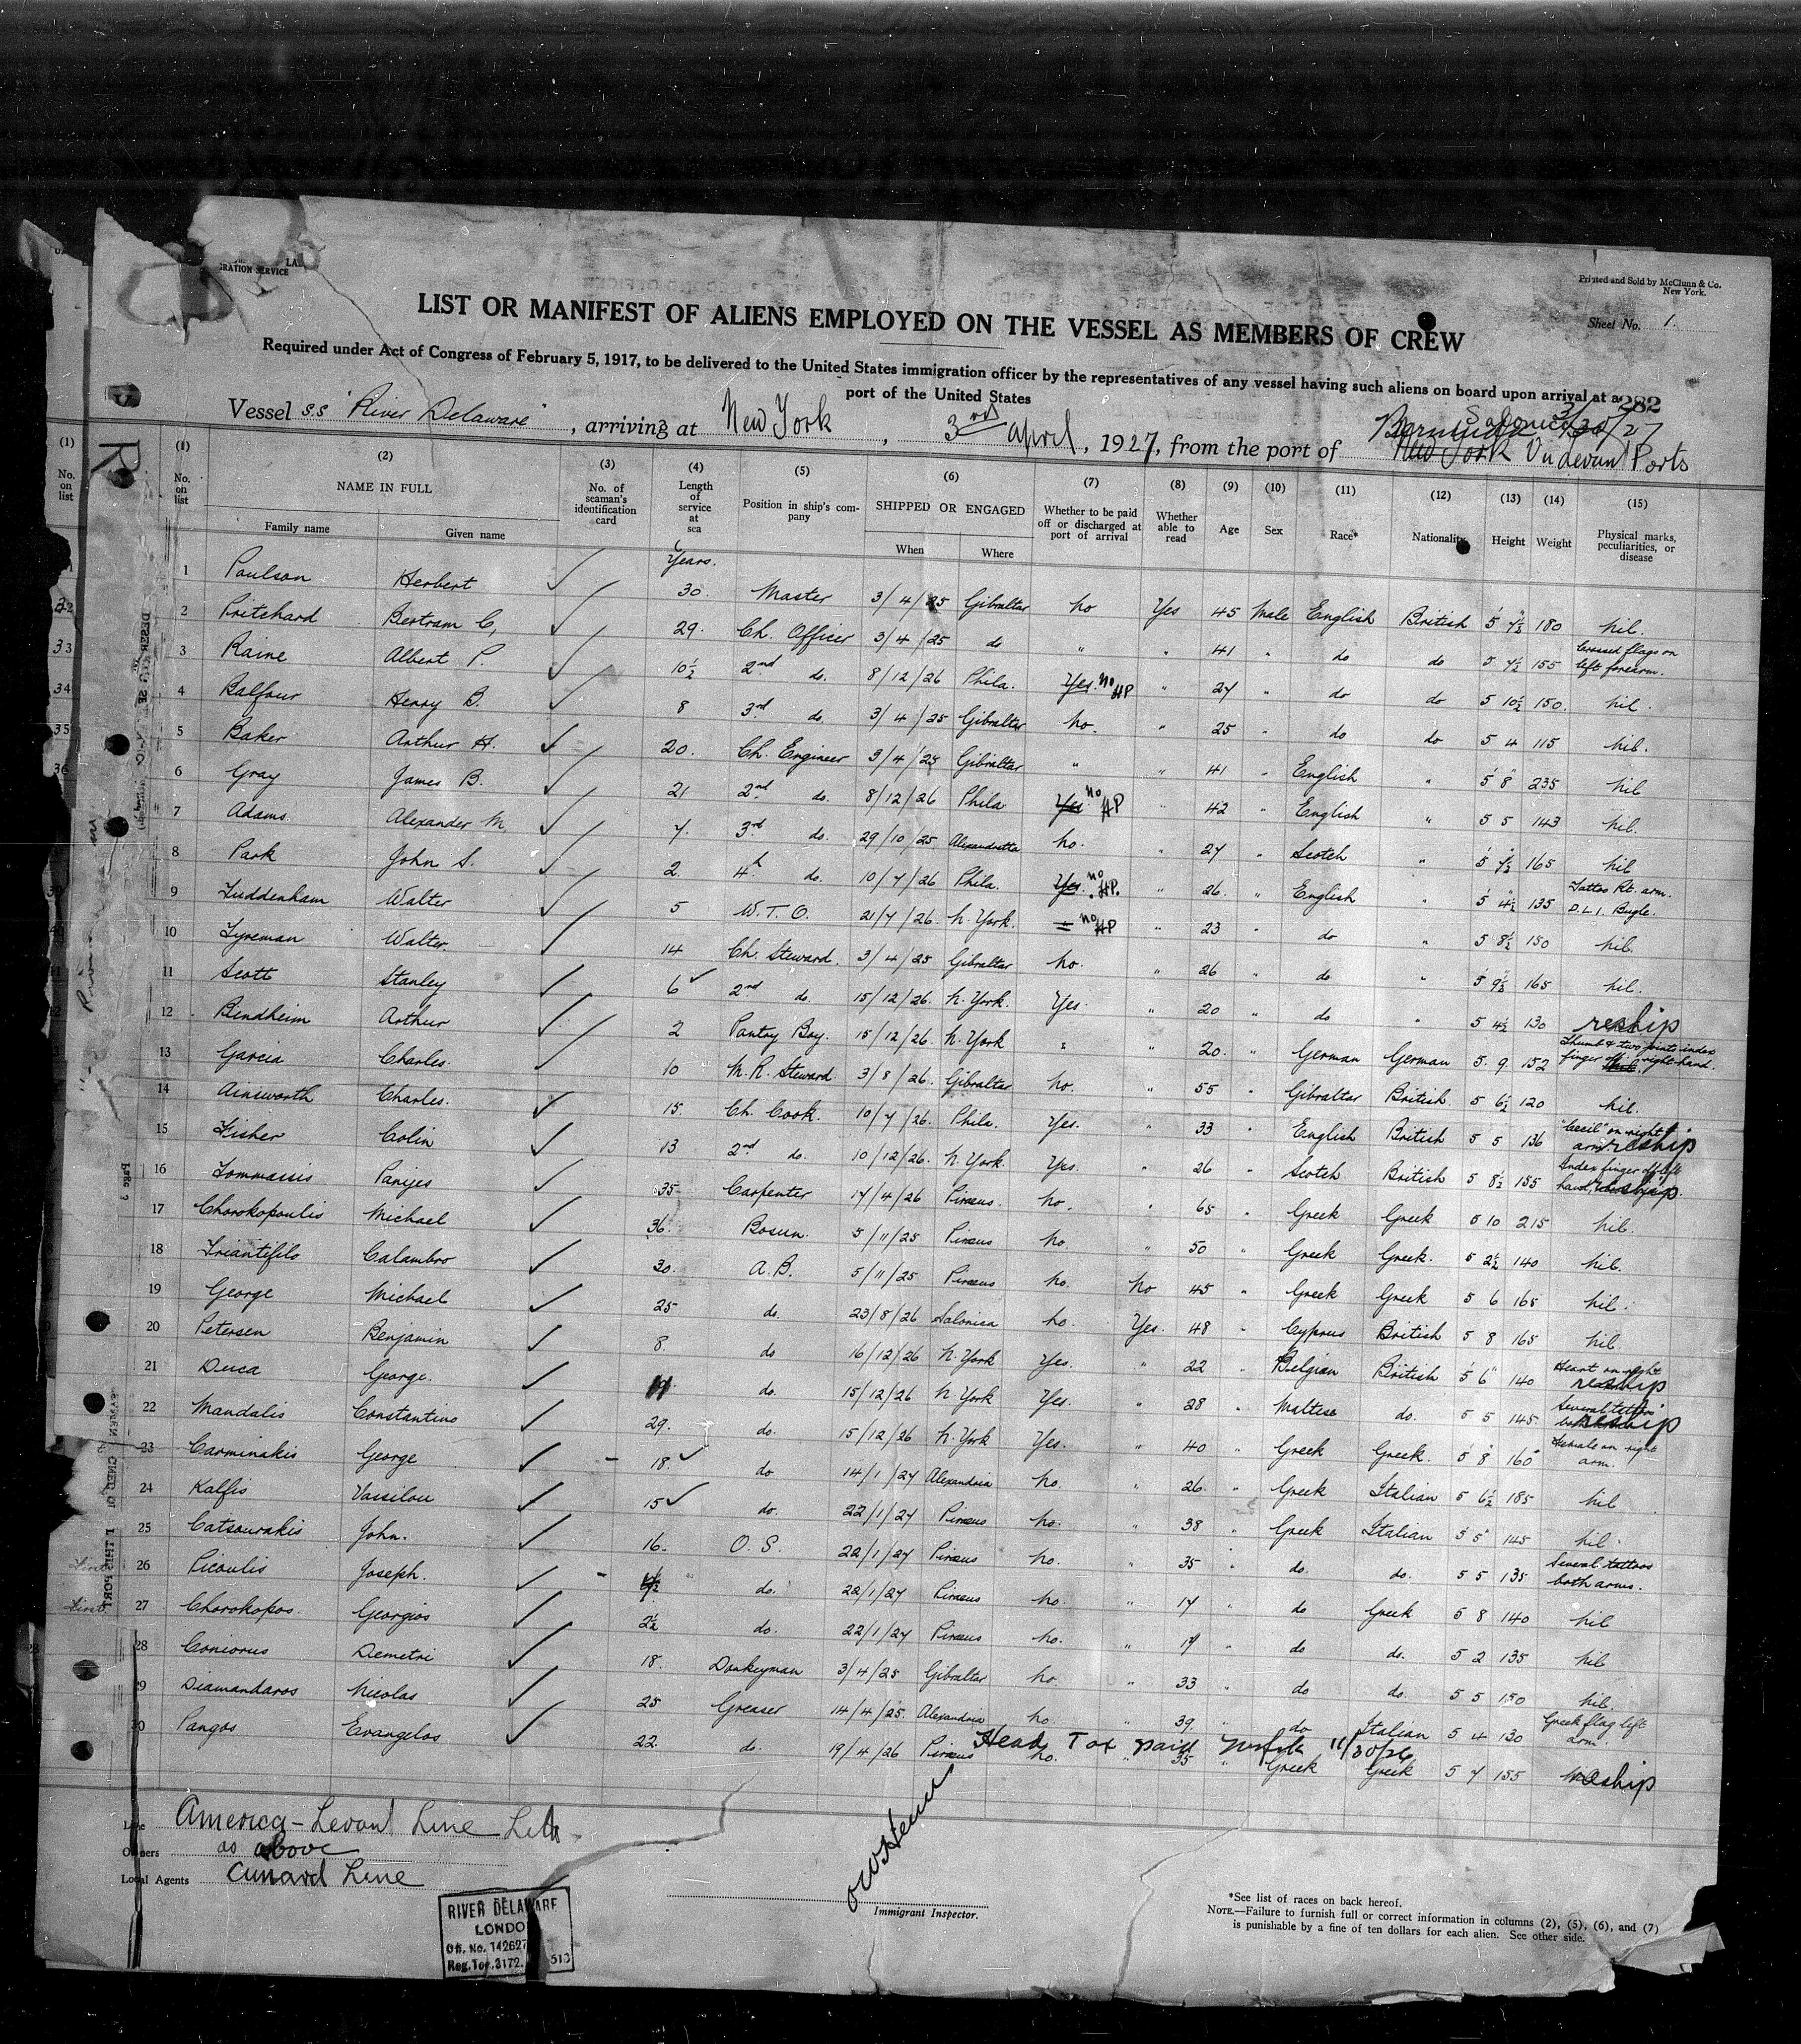 LA
GRATION SERVICE
Printed and Sold by McClunn & Co.
New York.
Sheet No. 1.
LIST OR MANIFEST OF ALIENS EMPLOYED ON THE VESSEL AS MEMBERS OF CREW
Required under Act of Congress of February 5, 1917, to be delivered to the United States immigration officer by the representatives of any vessel having such aliens on board upon arrival at a
port of the United States
282
Vessel S.S "River Delaware", arriving at New York, 3rd April, 1927, from the port of Bermuda
Ports
(1) No. on list (2) NAME IN FULL Family name Given name (3) No. of seaman's identification card (4) Length of service at sea (5) Position in ship's company (6) SHIPPED OR ENGAGED When Where (7) Whether to be paid off or discharged at port of arrival (8) Whether able to read (9) Age (10) Sex (11) Race* (12) Nationality (13) Height (14) Weight (15) Physical marks, peculiarities, or disease
Years.
1 Paulson Herbert 30. Master 3/4/25 Gibraltar no Yes 45 Male English British 5 7½ 180 nil.
2 Pritchard Bertram C, 29. Ch. Officer 3/4/25 do " " 41 " do do 5 7½ 155 Crossed flags on left forearm.
3 Raine Albert P. 10½ 2nd do. 8/12/26 Phila. Yes. no HP " 27 " do do 5 10½ 150. nil.
4 Balfour Henry B. 8 3rd do. 3/4/25 Gibraltar no. " 25 " do do 5 4 115 nil.
5 Baker Arthur H. 20. Ch. Engineer 3/4/25 Gibraltar " " 41 " English " 5 8 235 nil
6 Gray James B. 21 2nd do. 8/12/26 Phila Yes. no HP " 42 " English " 5 5 143 nil.
7 Adams. Alexander M. 7. 3rd do. 29/10/25 Alexandretta no. " 27 " Scotch " 5 7½ 165 nil
8 Park John S. 2 4th do. 10/7/26 Phila. Yes. no HP. " 26. " English " 5 4½ 135 Tattoo Rt. arm. D.L.I. Bugle.
9 Tuddenham Walter 5 W.T.O. 21/7/26. N. York. " no HP " 23 " do " 5 8½ 150 nil.
10 Tyreman Walter. 14 Ch. Steward. 3/4/25 Gibraltar no. " 26 " do " 5 9½ 165 nil.
11 Scott Stanley 6 2nd do. 15/12/26. N. York. Yes. " 20 " do " 5 4½ 130 reship
12 Bendheim Arthur 2 Pantry Boy. 15/12/26. N. York " " 20. " German German 5. 9. 152 Thumb & two joints index finger off right hand.
13 Garcia Charles. 10 M.R. Steward 3/8/26. Gibraltar no. " 55 " Gibraltar British 5 6½ 120 nil.
14 Ainsworth Charles. 15. Ch. Cook. 10/7/26. Phila. Yes. " 33 " English British 5 5 136 "Cecil" on right arm reship
15 Fisher Colin 13 2nd do. 10/12/26. N. York. Yes. " 26 " Scotch British 5 8½ 155 Index finger off left hand, reship.
16 Tommassis Parijes 35 Carpenter 17/4/26 Piraeus. no. " 65 " Greek Greek 5 10 215 nil.
17 Chorokopoulis Michael 36. Bosun. 5/11/25 Piraeus no. " 50 " Greek Greek. 5 2½ 140 nil.
18 Triantifilo Calambro 30. A.B. 5/11/25 Piraeus no. no 45 " Greek Greek 5 6 165 nil.
19 George Michael 25 do. 23/8/26 Salonica no. Yes. 48 " Cyprus British 5 8 165 nil.
20 Petersen Benjamin 8. do 16/12/26 N. York Yes. " 22 " Belgian British 5 6 140 Heart on right reship
21 Duca George. do. 15/12/26 N. York Yes. " 28 " Maltese do. 5 5 145 Several tattoos reship
22 Mandalis Constantino 29. do. 15/12/26 N. York Yes. " 40 " Greek Greek. 5 8 160 Female on right arm.
23 Carminakis George 18. do 14/1/27 Alexandria no. " 26. " Greek Italian 5 6½ 185 nil
24 Kalfis Vassilou 15 do. 22/1/27 Piraeus no. " 38 " Greek Italian 5 5 145 nil.
25 Catsourakis John. 16. O.S. 22/1/27 Piraeus no. " 35 " do. do. 5 5 135 Several tattoos both arms.
26 Picoulis Joseph. do. 22/1/27 Piraeus no. " 17 " do Greek 5 8 140 nil
27 Chorokopos. Georgios 2½ do. 22/1/27 Piraeus no. " 19 " do do. 5 2 135 nil
28 Coniorus Demetri 18. Donkeyman 3/4/25 Gibraltar no. " 33 " do do. 5 5 150 nil.
29 Diamandaros Nicolas 25 Greaser 14/4/25. Alexandria no. " 39. " do Italian 5 4 130 Greek flag left arm.
30 Pangos Evangelos 22. do. 19/4/26 Piraeus no. " 35 " Greek Greek 5 7 155 reship
Head Tax paid Norfolk 11/30/26
Line America-Levant Line Ltd
Owners as above
Local Agents Cunard Line
Immigrant Inspector.
RIVER DELAWARE
LONDON
Off. No. 142627
Reg. Ton. 3172. 513
*See list of races on back hereof.
NOTE.—Failure to furnish full or correct information in columns (2), (5), (6), and (7)
is punishable by a fine of ten dollars for each alien. See other side.